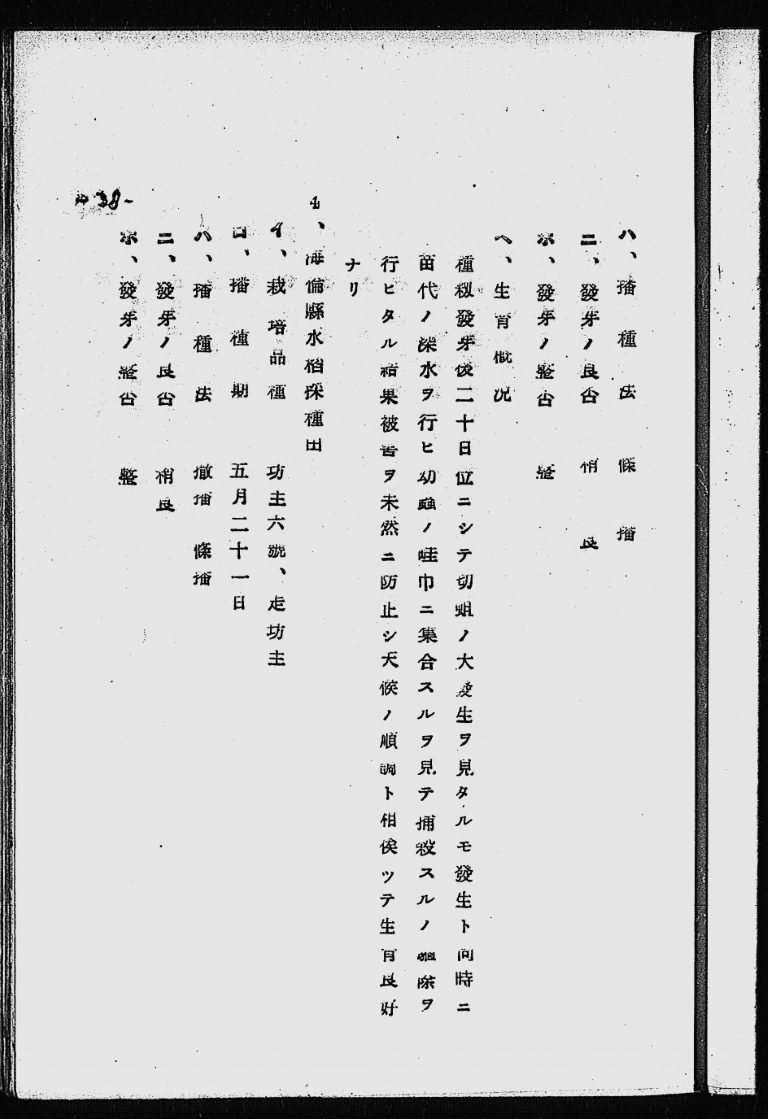 ハ、播種法　條播
ニ、發牙ノ良否　稍良
ホ、發牙ノ整否　整
ヘ、生育概況
種籾發芽後二十日位ニシテ切蛆ノ大發生ヲ見タルモ發生ト同時ニ
苗代ノ深水ヲ行ヒ幼蟲ノ畦巾ニ集合スルヲ見テ捕殺スルノ驅除ヲ
行ヒタル結果被害ヲ未然ニ防止シ天候ノ順調ト相俟ツテ生育良好
ナリ
4、海倫縣水稻採種田
イ、栽培品種　坊主六號、走坊主
ロ、播種期　五月二十一日
ハ、播種法　撒播　條播
ニ、發牙ノ良否　稍良
ホ、發牙ノ整否　整
38-